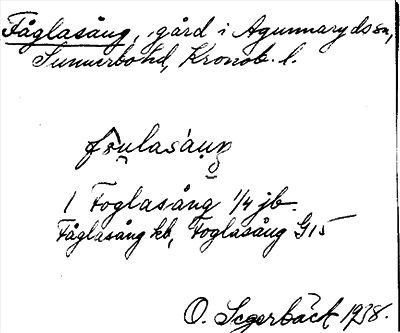 Fåglasång, gård i Agunnaryds sn,
Sunnerbo hd, Kronob. l.
1 Foglasång 1/4 jb.
Fåglasång kb, Foglasång G15
O. Segerbäck 1938.